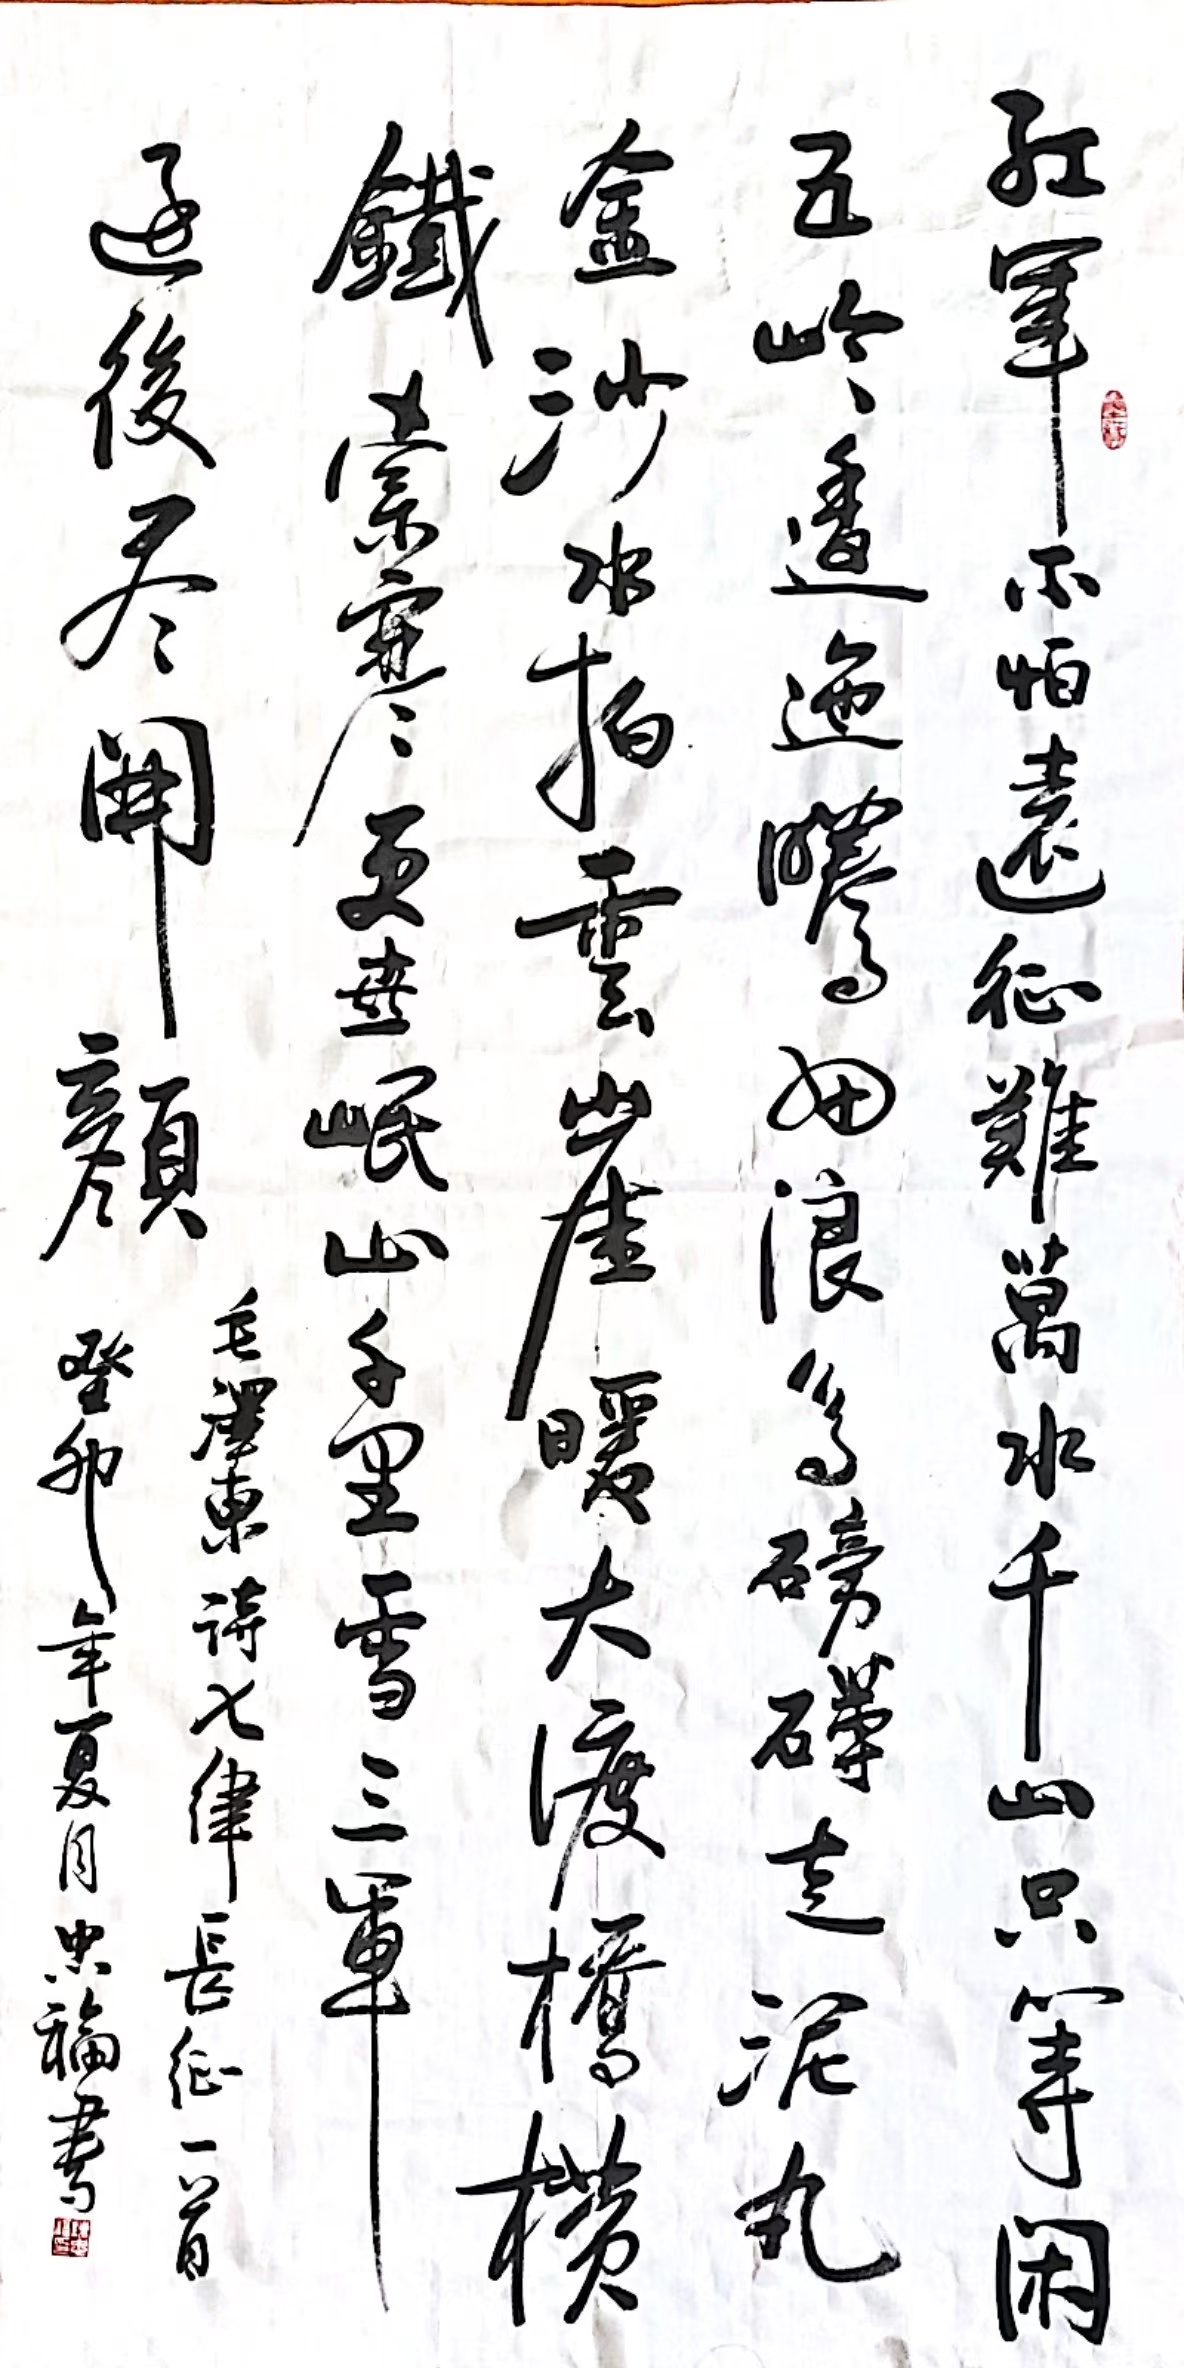 紅軍不怕遠征難萬水千山只等閑
五岭逶迤騰細浪烏磅礴走泥丸
金沙水拍雲崖暖大渡橋橫
鐵索寒更喜岷山千里雪三軍
過後尽開顏
毛澤東詩七律長征一首
癸卯年夏月忠福書